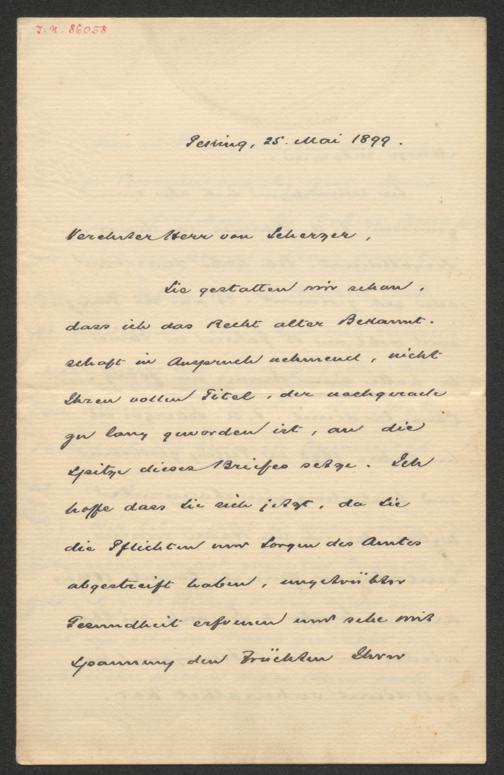 I.N. 86058
Peking, 25. Mai 1899.
Verehrter Herr von Scherzer,
Sie gestatten mir schon,
dass ich das Recht alter Bekannt-
schaft in Anspruch nehmend, nicht
Ihren vollen Titel, der nachgerade
zu lang geworden ist, an die
Spitze dieses Briefes setze. Ich
hoffe dass Sie sich jetzt, da Sie
die Pflichten und Sorgen des Amtes
abgestreift haben, ungetrübter
Gesundheit erfreuen und sehe mit
Spannung den Früchten Ihrer